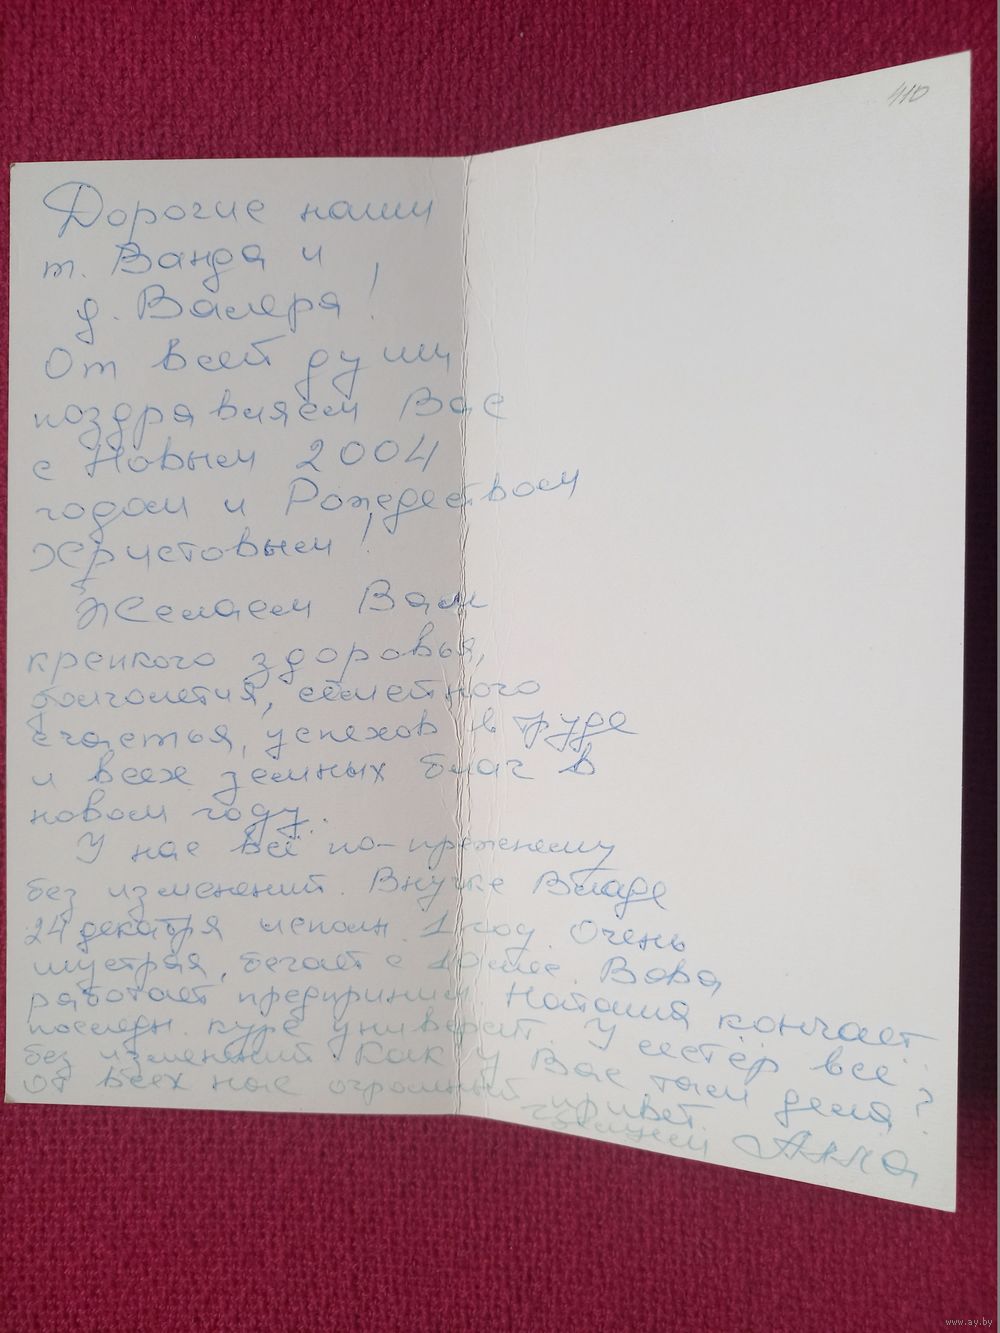 410
Дорогие наши
т. Ванда и
д. Валеря!
От всей души
поздравляем Вас
с Новым 2004
годом и Рождеством
Христовым!
Желаем Вам
крепкого здоровья,
долголетия, семейного
счастья, успехов в труде
и всех земных благ в
новом году.
У нас всё по-прежнему
без изменений. Внучке Владе
24 декабря исполн. 1 год. Очень
шустрая, бегает с 10 мес. Вова
работает предприним. Наташа кончает
последн. курс университ. У сестёр всё
без изменений. Как у Вас там дела?
От всех нас огромный привет.
Алла
www.ay.by